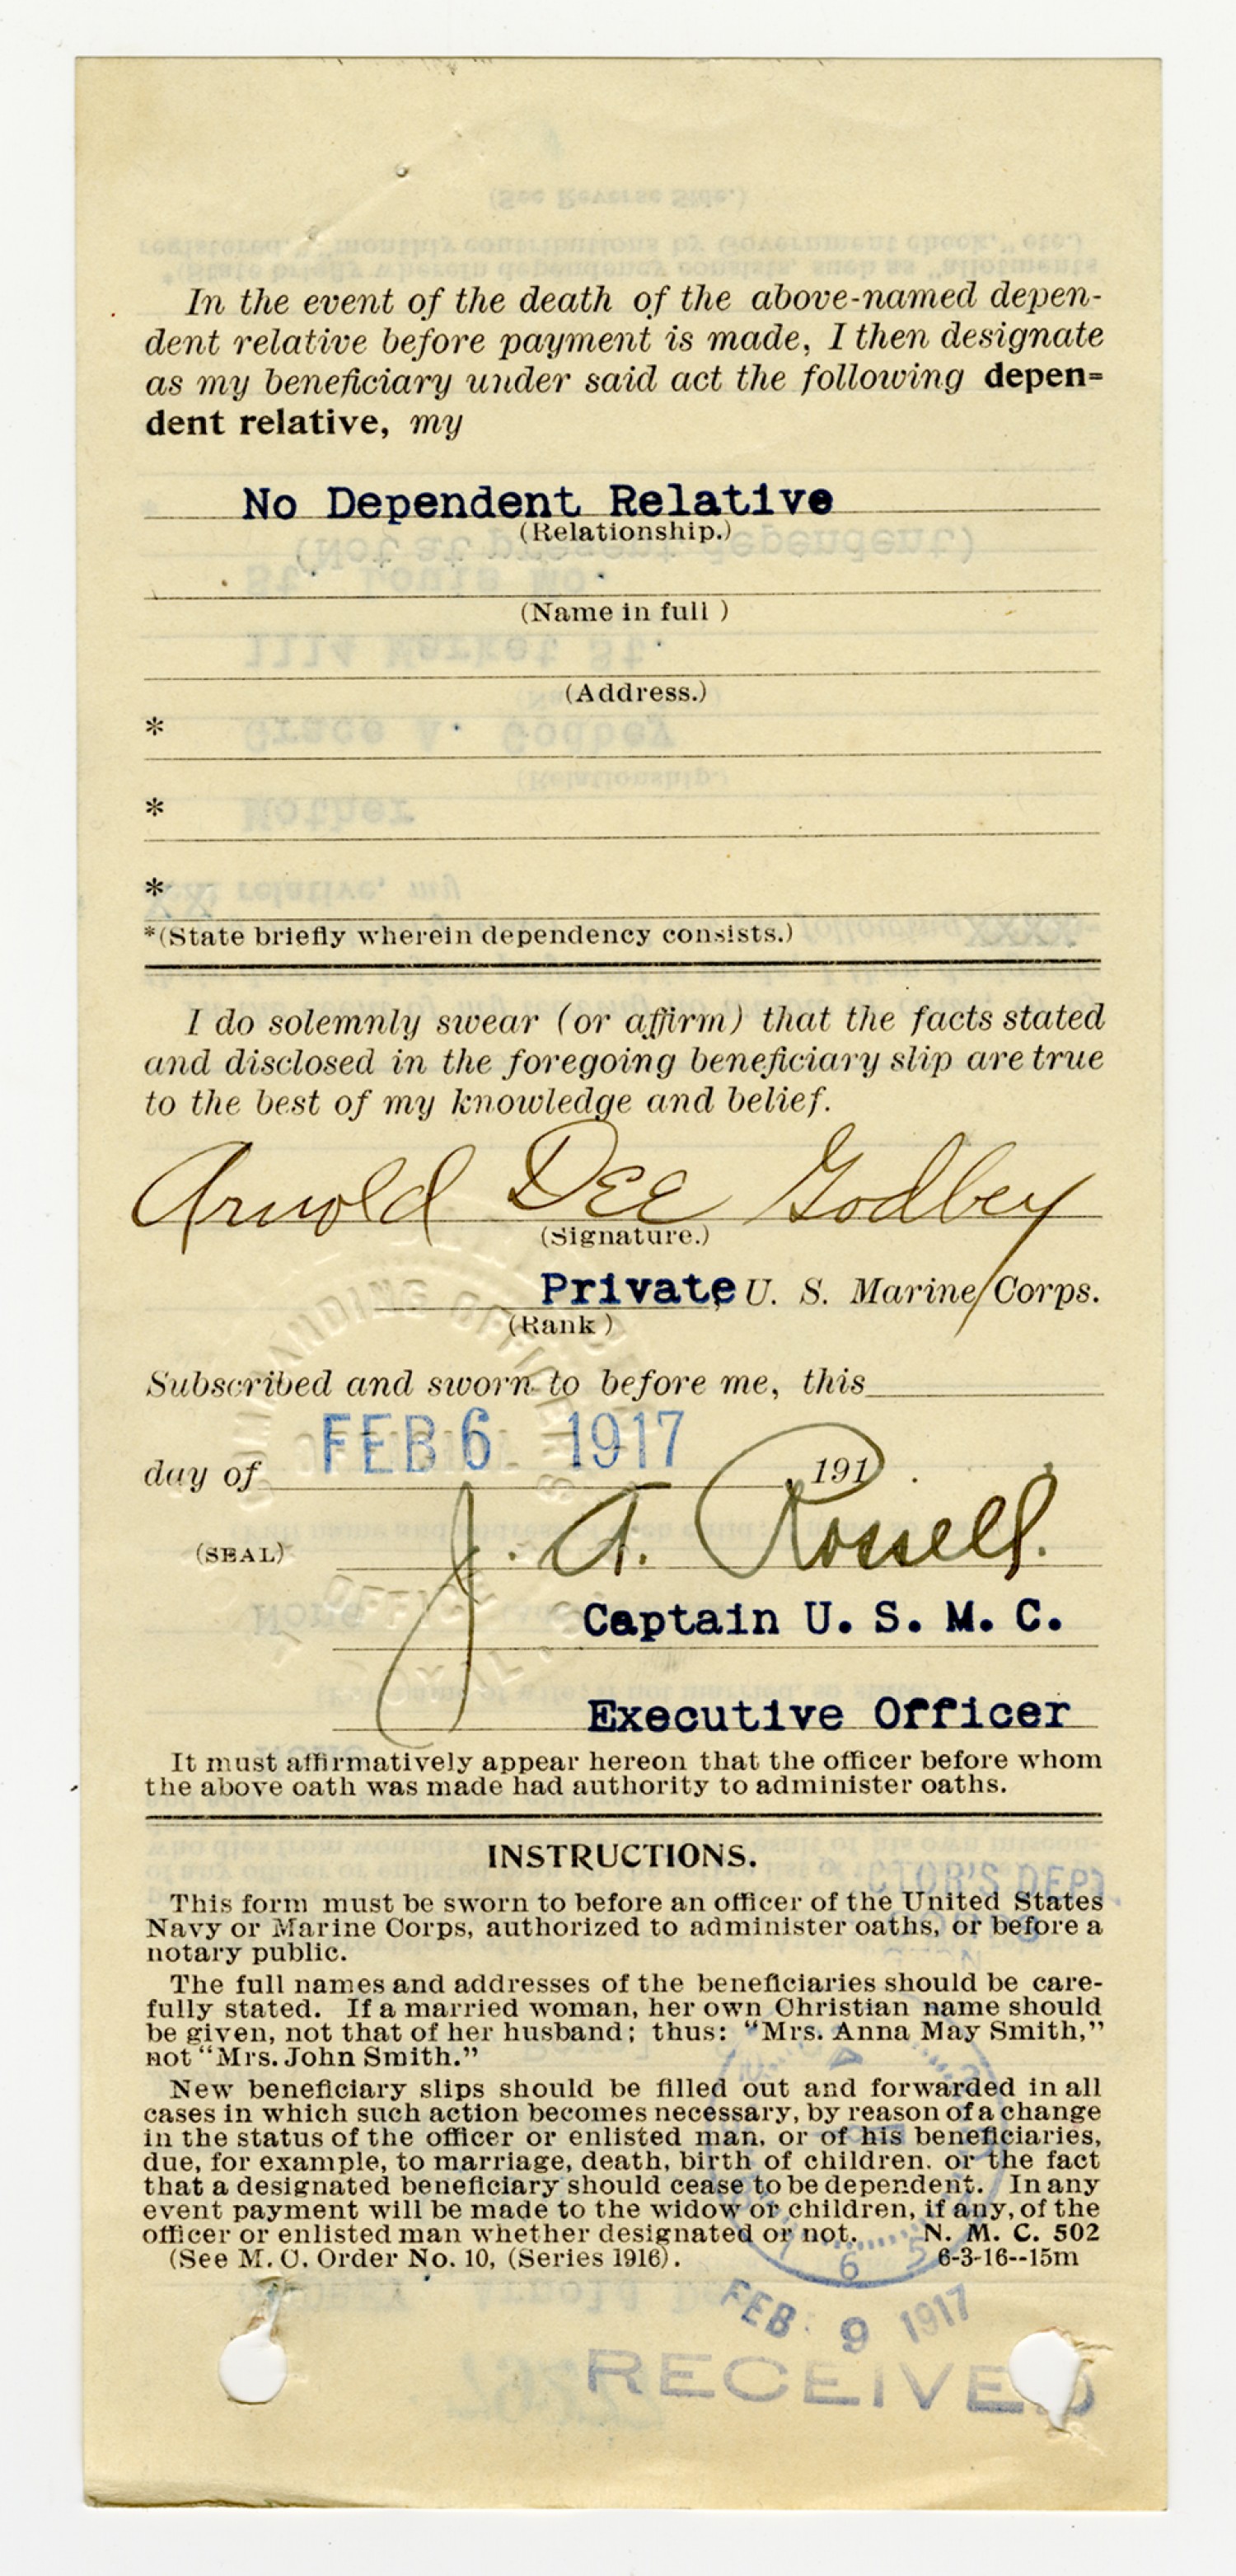 In the event of the death of the above-named depen-
dent relative before payment is made, I then designate
as my beneficiary under said act the following depen=
dent relative, my
No Dependent Relative
(Relationship.)
(Name in full )
(Address.)
*
*
*
*(State briefly wherein dependency consists.)
I do solemnly swear (or affirm) that the facts stated
and disclosed in the foregoing beneficiary slip are true
to the best of my knowledge and belief.
Arnold Dee Godbey
(Signature.)
Private, U. S. Marine Corps.
(Rank )
Subscribed and sworn to before me, this
FEB 6 1917
day of , 191 .
J. A. Rossell.
(SEAL)
Captain U. S. M. C.
Executive Officer
It must affirmatively appear hereon that the officer before whom
the above oath was made had authority to administer oaths.
INSTRUCTIONS.
This form must be sworn to before an officer of the United States
Navy or Marine Corps, authorized to administer oaths, or before a
notary public.
The full names and addresses of the beneficiaries should be care-
fully stated. If a married woman, her own Christian name should
be given, not that of her husband; thus: "Mrs. Anna May Smith,"
not "Mrs. John Smith."
New beneficiary slips should be filled out and forwarded in all
cases in which such action becomes necessary, by reason of a change
in the status of the officer or enlisted man, or of his beneficiaries,
due, for example, to marriage, death, birth of children. or the fact
that a designated beneficiary should cease to be dependent. In any
event payment will be made to the widow or children, if any, of the
officer or enlisted man whether designated or not. N. M. C. 502
(See M. C. Order No. 10, (Series 1916). 6-3-16--15m
FEB 9 1917
RECEIVED